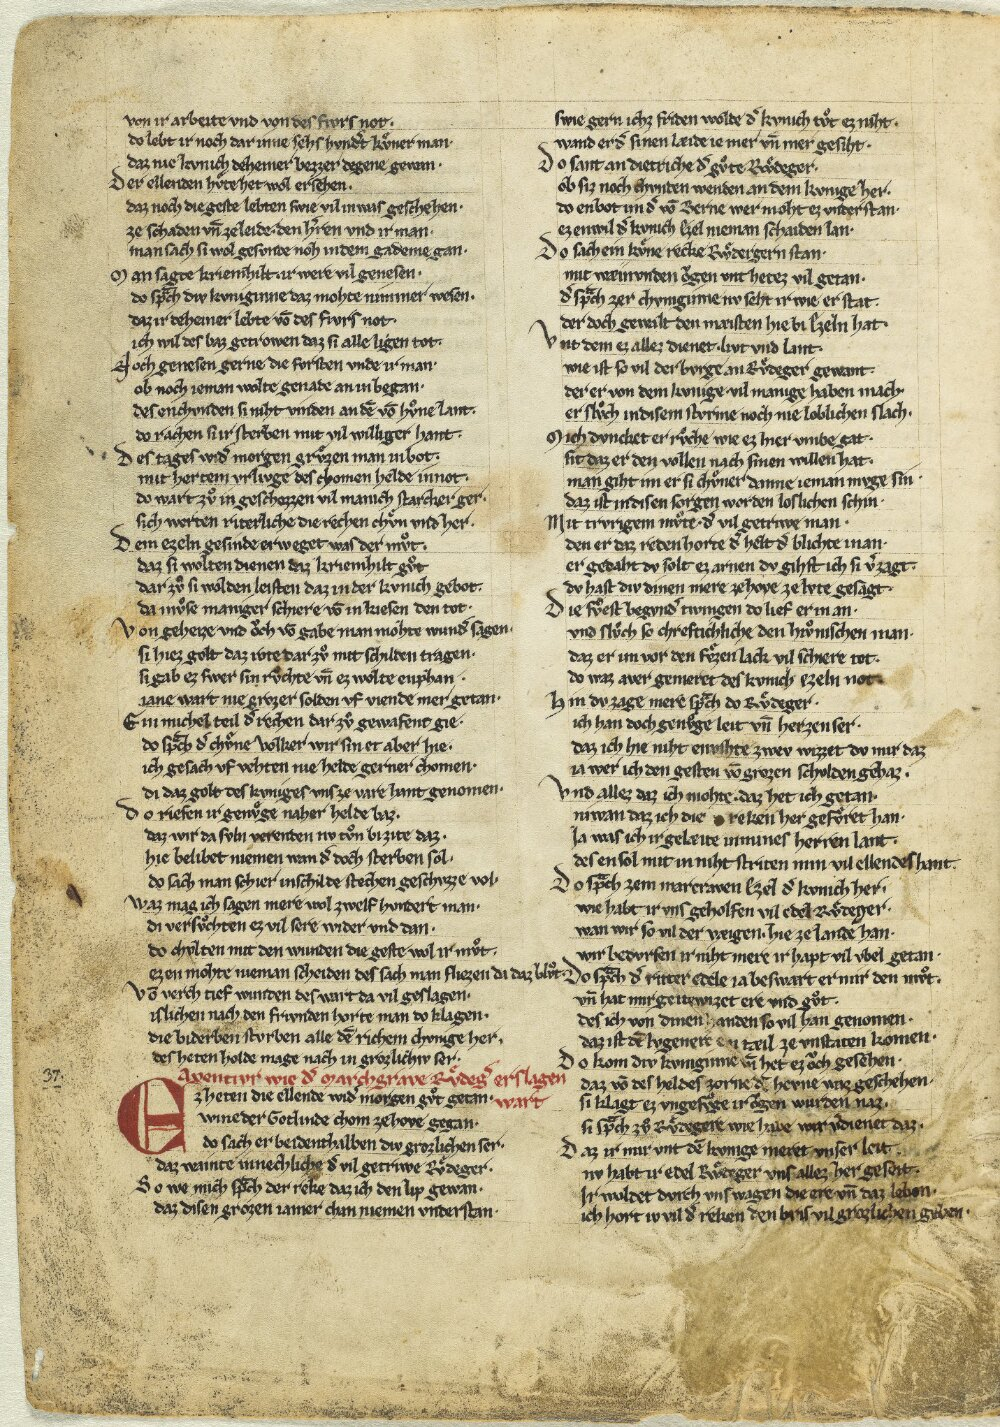 von ir arbeite vnd von des fiwrs not·
do lebt ir noch dar inne sehs hvndˀt kv̊ner man·
daz nie kvnich deheiner bezzer degene gewan·
Der ellenden hv̊te het wol ersehen·
daz noch die geste lebten swie vil in was geschehen·
ze schaden vn̄ ze leide· den hˀren vnd ir man·
man sach si wol gesvnde noh in dem gademe gan·
Man sagte kriemhilt· ir were vil genesen·
do sp̃ch div kvniginne daz mohte nimmer wesen·
daz ir deheiner lebte vō des fiwrs not·
ich wil des baz getrowen daz si alle ligen tot·
Noch genesen gerne die fvrsten vnde ir man·
ob noch ieman wolte genade an in began·
des enchvnden si niht vinden an dē vō hv̊ne lant·
do rachen si ir sterben mit vil williger hant·
Des tages widˀ morgen grv̊zen man in bot·
mit hertem vrlivge des chomen helde in not·
do wart zv̊ in geschozzen vil manich starcher ger·
sich werten riterliche die rechen chv̊n vnd her·
Dem ezeln gesinde erweget was der mv̊t·
daz si wolten dienen daz kriemhilt gv̊t
dar zv̊ si wolden leisten daz in der kvnich gebot·
da mv̊se maniger schiere vō in kiesen den tot·
Von geheize vnd o̊ch vō gabe man mohte wundˀ sagen·
si hiez golt daz rote dar zv̊ mit schilden tragen·
si gab ez swer sin rv̊chte vn̄ ez wolte enphan·
iane wart nie grozer solden vf viende mer getan·
Ein michel teil dˀ rechen dar zv̊ gewafent gie·
do sp̃ch dˀ chv̊ne volker wir sin et aber hie·
ich gesach vf vehten nie helde gerner chomen·
di daz golt des kvniges vns ze vare hant genomen·
Do riefen ir genv̊ge naher helde baz·
daz wir da svln verenten nv tv̊n bi zite daz·
hie belibet niemen wan dˀ doch sterben sol·
do sach man schier in schilde stechen geschvzze vol·
Waz mag ich sagen mere wol zwelf hvndert man·
di versv̊chten ez vil sere wider vnd dan·
do chvlten mit den wunden die geste wol ir mv̊t·
ez en mohte nieman scheiden des sach man fliezen da daz blv̊t·
Vō verch tief wunden des wart da vil geslagen·
islichen nach den frivnden horte man do klagen·
die biderben stvrben alle dē richem chvnige her·
des heten holde mage nach in grozlichiv ser·
37·
Aventivr wie dˀ Marchgrave Rv̊degˀ erslagen
wart
Ez heten die ellende widˀ morgen gv̊t getan·
wine der Gotlinde chom ze hove gegan·
do sach er beidenthalben div grozlichen ser·
daz wainte innechliche dˀ vil getriwe Rv̊deger·
So we mich sp̃ch der reke daz ich den lip gewan·
daz disen grozen iamer chan niemen vnderstan·
swie gern ichz friden wolde dˀ kvnich tv̊t ez niht·
wand er dˀ sinen læide ie mer vn̄ mer gesiht·
Do sant an dietriche dˀ gv̊te Rv̊deger·
ob siz noch chvnden wenden an dem kvnige her·
do enbot im dˀ vō Berne wer moht ez vnderstan·
ez enwil dˀ kvnich Ezel nieman schaiden lan·
Do sach ein kv̊ne recke Rv̊dergern stan·
mit wæinvnden o̊gen vnt hetez vil getan·
dˀ sp̃ch zer chvniginne nv seht ir wie er stat·
der doch gewalt den mæisten hie bi Ezeln hat·
Vnt dem ez allez dienet· livt vnd lant·
wie ist so vil der bvrge an Rv̊deger gewant·
der er von dem kvnige· vil manige haben mach·
er slv̊ch in disem stvrme noch nie loblichen slach·
Mich dvncket er rv̊che wie ez hier vmbe gat·
sit daz er den vollen nach sinen willen hat·
man giht im er si chv̊ner danne ieman mvge sin·
daz ist in disen sorgen worden loslichen schin·
Mit trvrigem mv̊te· dˀ vil getriwe man·
den er daz reden horte dˀ helt dˀ blichte in an·
er gedaht dv solt ez arnen dv gihst ich si vˀzagt·
dv hast div dinen mere ze hove ze lvte gesagt·
Die fv̊st begvndˀ twingen do lief er in an·
vnd slv̊ch so chreftichliche den hiv̊nischen man·
daz er im vor den fv̊zen lack vil schiere tot·
do waz aver gemeret des kvnich Ezeln not·
Hin dv zage mere sp̃ch do Rv̊deger·
ich han doch genv̊ge leit vn̄ herzen ser·
daz ich hie niht envihte zwev wizzet dv mir daz
ia wer ich den gesten vō grozen schvlden gehaz·
Vnd allez daz ich mohte· daz het ich getan·
niwan daz ich die reken her gefv̊ret han·
Ja was ich ir gelæite in mines herren lant·
des en sol mit in niht striten min vil ellendes hant·
Do sp̃ch zem marcraven Ezel dˀ kvnich her·
wie habt ir vns geholfen vil edel Rv̊deger·
wan wir so vil der veigen· hie ze lande han·
wir bedvrfen ir niht mere ir hapt vil vbel getan·
Do sp̃ch dˀ ritter edele ia beswart er mir den mv̊t·
vn̄ hat mir geitewizet ere vnd gv̊t·
des ich von dinen handen so vil han genomen·
daz ist dē lvgenere ein tæil ze vnstaten komen·
Do kom div kvniginne vn̄ het ez o̊ch gesehen·
daz vō des heldes zorne dē hevne was geschehen·
si klagt ez vngefv̊ge ir o̊gen wurden naz·
si sp̃ch zv̊ Rv̊degere wie habe wir vˀdienet daz·
Daz ir mir vnt dē kvnige meret vnser leit·
nv habt ir edel Rv̊deger vns allez her geseit·
Ir woldet dvrch vns wagen die ere vn̄ daz leben·
ich hort iv vil dˀ reken den bris vil grozlichen geben·